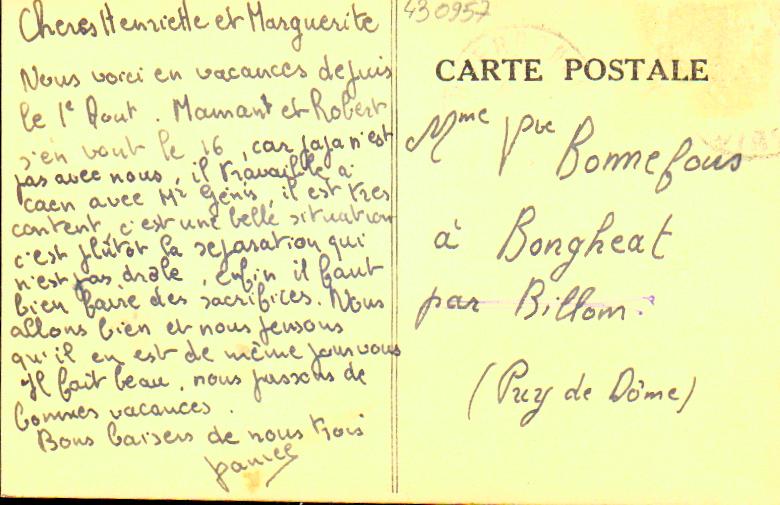 Cheres Henriette et Marguerite
Nous voici en vacances depuis
le 1e Aout. Mamant et Robert
s'en vont le 16, car papa n'est
pas avec nous, il travaille à
caen avec Mr Génis, il est tres
content, c'est une belle situation
c'est plutot la separation qui
n'est pas drole, enfin il faut
bien faire des sacrifices. Nous
allons bien et nous pensons
qu'il en est de même pour vous
Il fait beau, nous passons de
bonnes vacances.
Bons baisers de nous trois
430957
CARTE POSTALE
Mme Vve Bonnefous
à Bongheat
par Billom
(Puy de Dôme)